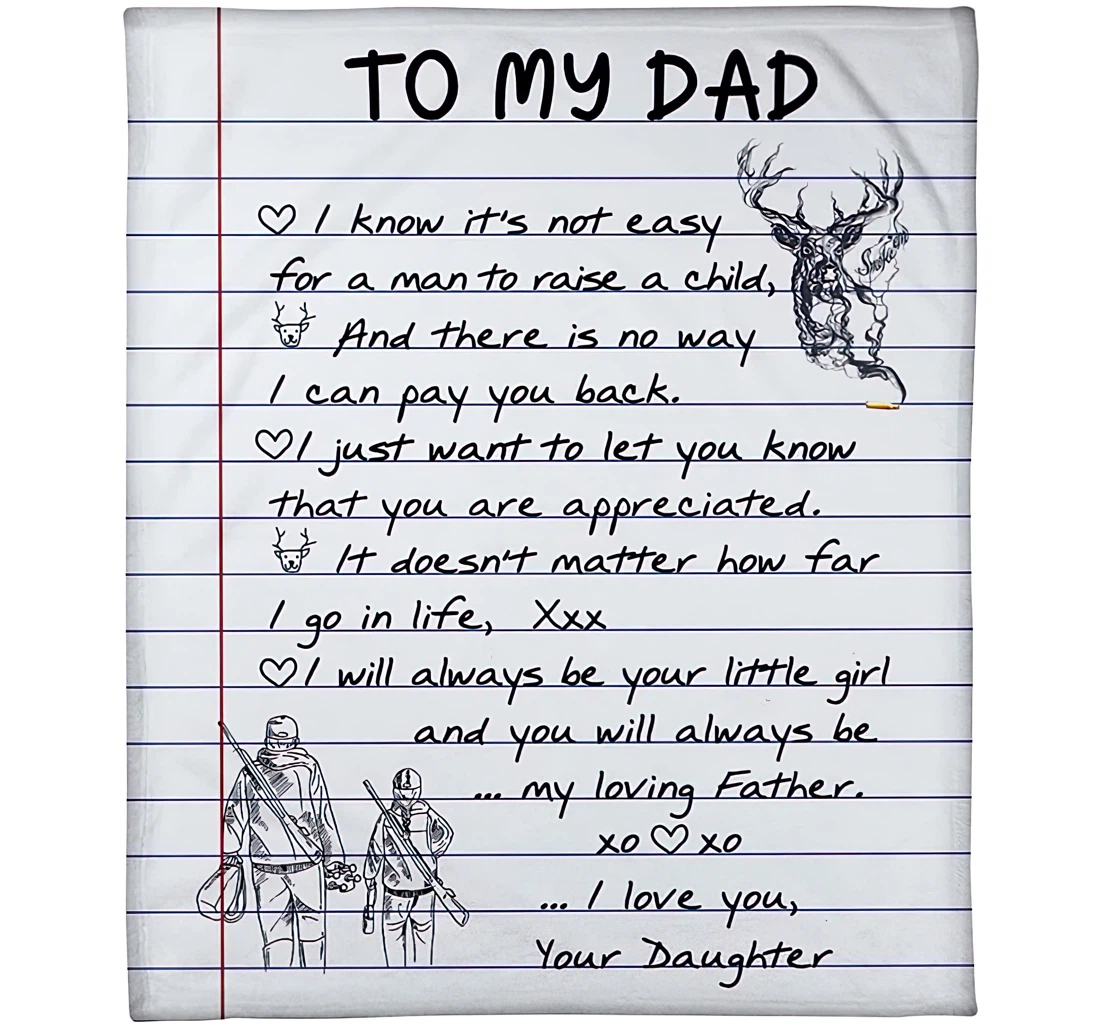 TO MY DAD
♡ I know it's not easy
for a man to raise a child,
And there is no way
I can pay you back.
♡ I just want to let you know
that you are appreciated.
It doesn't matter how far
I go in life, Xxx
♡ I will always be your little girl
and you will always be
... my loving Father.
xo ♡ xo
... I love you,
Your Daughter